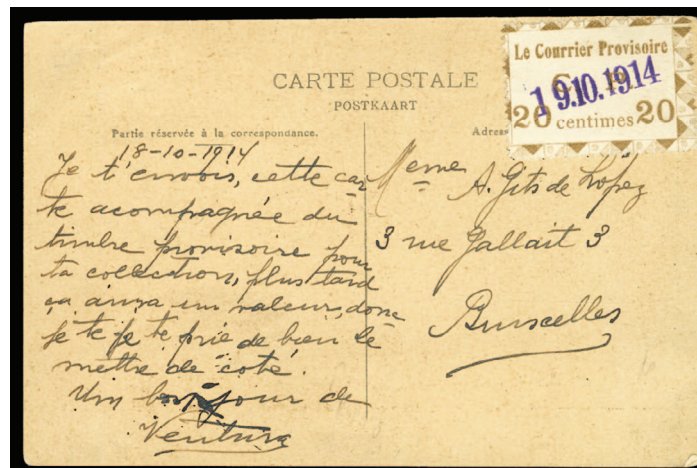 Le Courrier Provisoire
C. P.
19.10.1914
20 centimes 20
CARTE POSTALE
POSTKAART
Partie réservée à la correspondance.
Adres
18-10-1914
Je t'envois, cette car
te acompagnée du
timbre provisoire pour
ta collection, plus tard
ça aura un valeur, donc
je te je te prie de bien le
mettre de coté.
Um bonjour de
Ventura
Meme A. Gits de Lopez
3 rue Gallait 3
Bruscelles